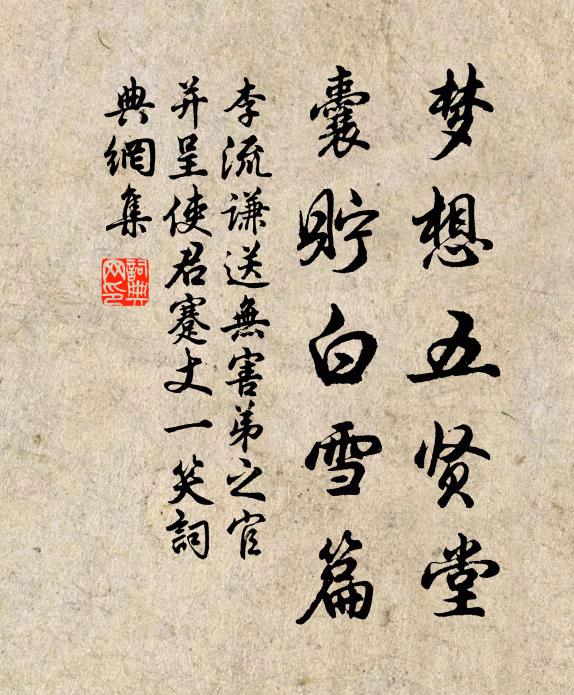 梦想五贤堂
囊贮白雪篇
李流谦送無害弟之官
并呈使君蹇丈一笑詞
典網集
詞典
网印